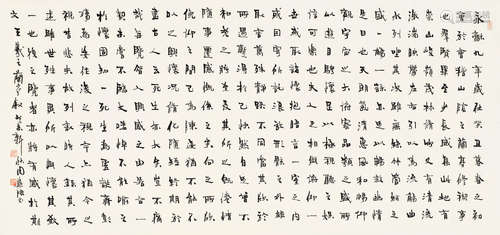 永和九年歲在癸丑暮春之初
會于會稽山陰之蘭亭脩禊事
也羣賢畢至少長咸集此地有
崇山峻領茂林脩竹又有清流
激湍暎帶左右引以為流觴曲
水列坐其次雖無絲竹管弦之
盛一觴一詠亦足以暢敘幽情
是日也天朗氣清惠風和暢仰
觀宇宙之大俯察品類之盛所
以遊目騁懷足以極視聽之娛
信可樂也夫人之相與俯仰一
世或取諸懷抱悟言一室之內
或因寄所託放浪形骸之外
雖趣舍萬殊靜躁不同當其欣
於所遇暫得於己快然自足不
知老之將至及其所之既惓情
隨事遷感慨係之矣向之所欣
俛仰之間以為陳迹猶不能不
以之興懷況脩短隨化終期於
盡古人云死生亦大矣豈不痛
哉每攬昔人興感之由若合一
契未嘗不臨文嗟悼不能喻之
於懷固知一死生為虛誕齊彭
殤為妄作後之視今亦由今之
視昔悲夫故列敘時人錄其所
述雖世殊事異所以興懷其致
一也後之攬者亦將有感於斯
文 王羲之蘭亭敘